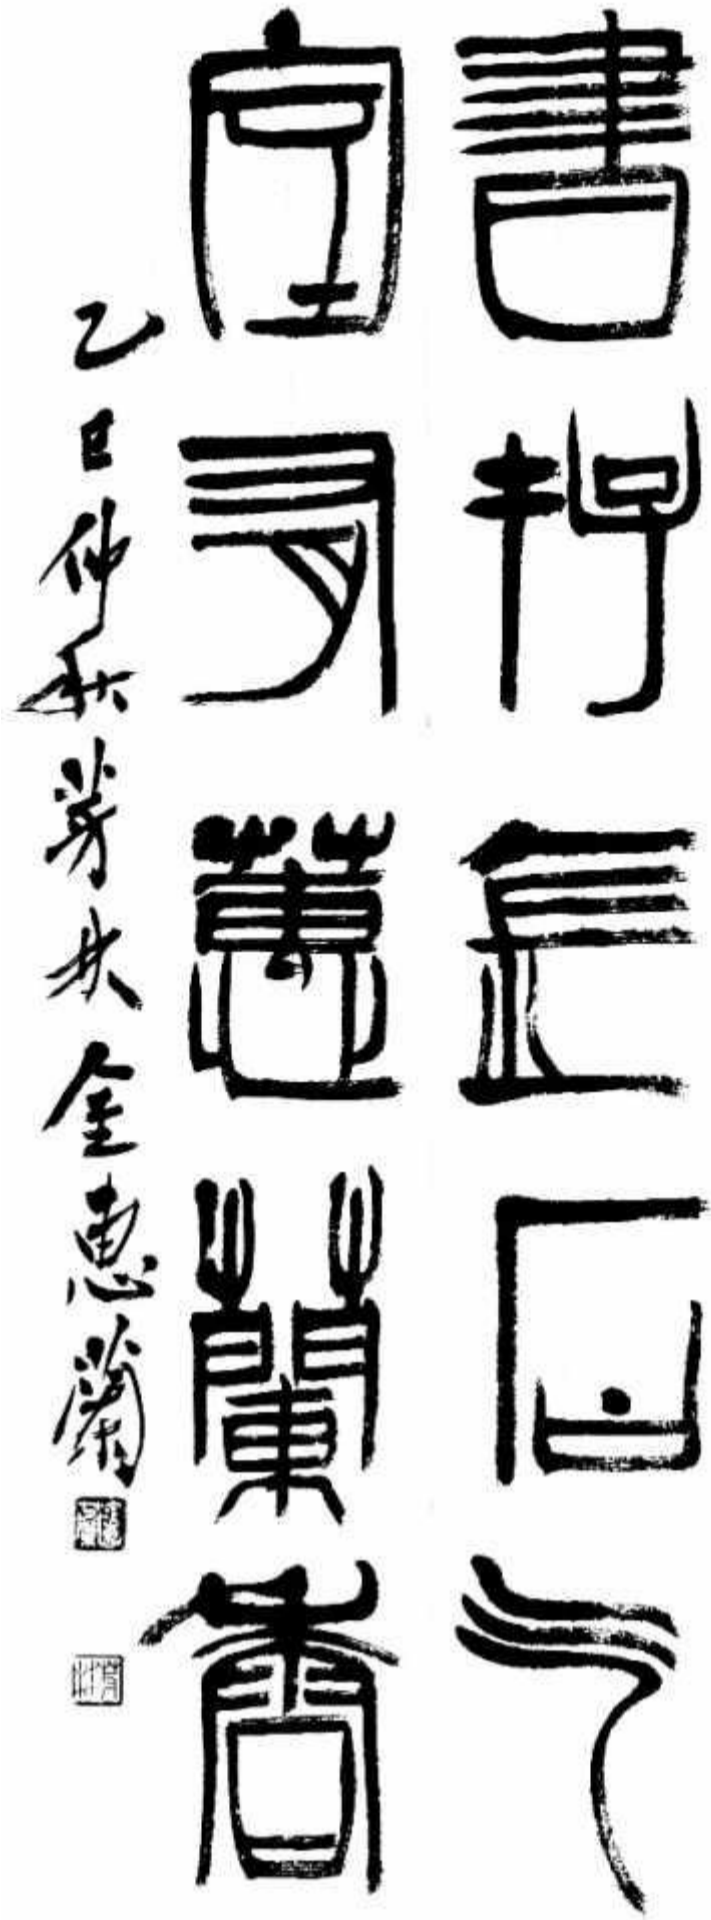 書存金石气
室有蕙蘭香
乙巳仲秋芳林金惠蘭